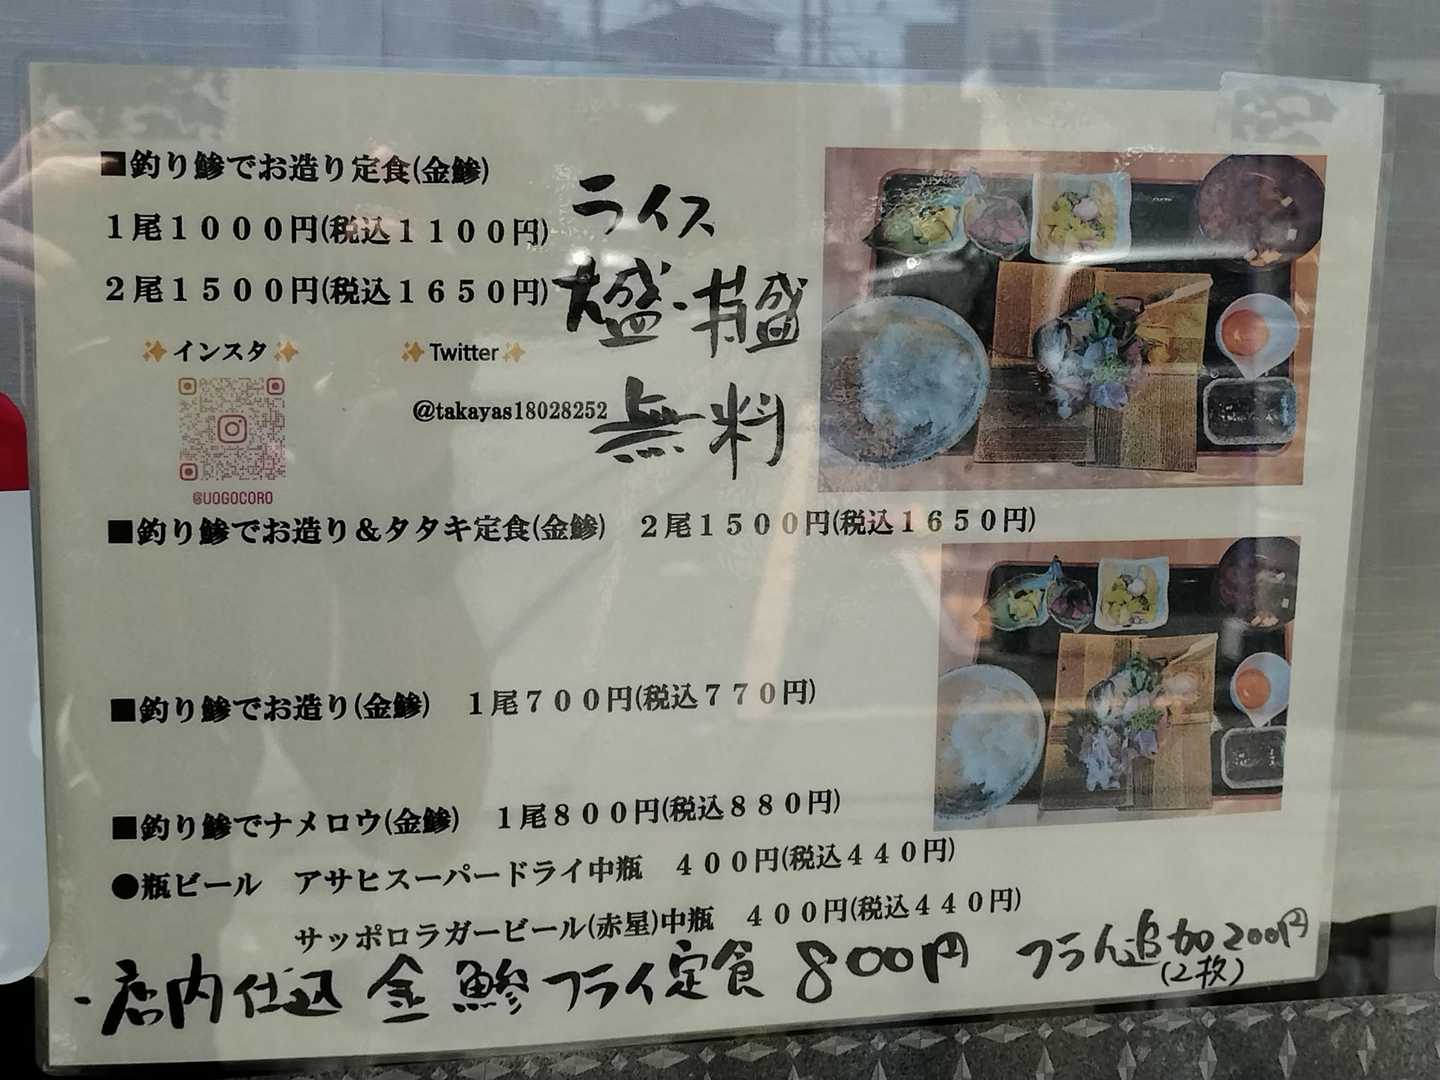 ■釣り鯵でお造り定食(金鯵)
1尾1000円(税込1100円)
2尾1500円(税込1650円)
ライス
大盛・特盛
無料
✨インスタ✨
✨Twitter✨
@takayas18028252
@UOGOCORO
■釣り鯵でお造り&タタキ定食(金鯵) 2尾1500円(税込1650円)
■釣り鯵でお造り(金鯵) 1尾700円(税込770円)
■釣り鯵でナメロウ(金鯵) 1尾800円(税込880円)
●瓶ビール アサヒスーパードライ中瓶 400円(税込440円)
サッポロラガービール(赤星)中瓶 400円(税込440円)
・店内仕込 金鯵フライ定食 800円 フライ追加200円
(2枚)